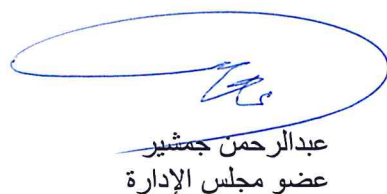 عبدالرحمن جمشير
عضو مجلس الإدارة